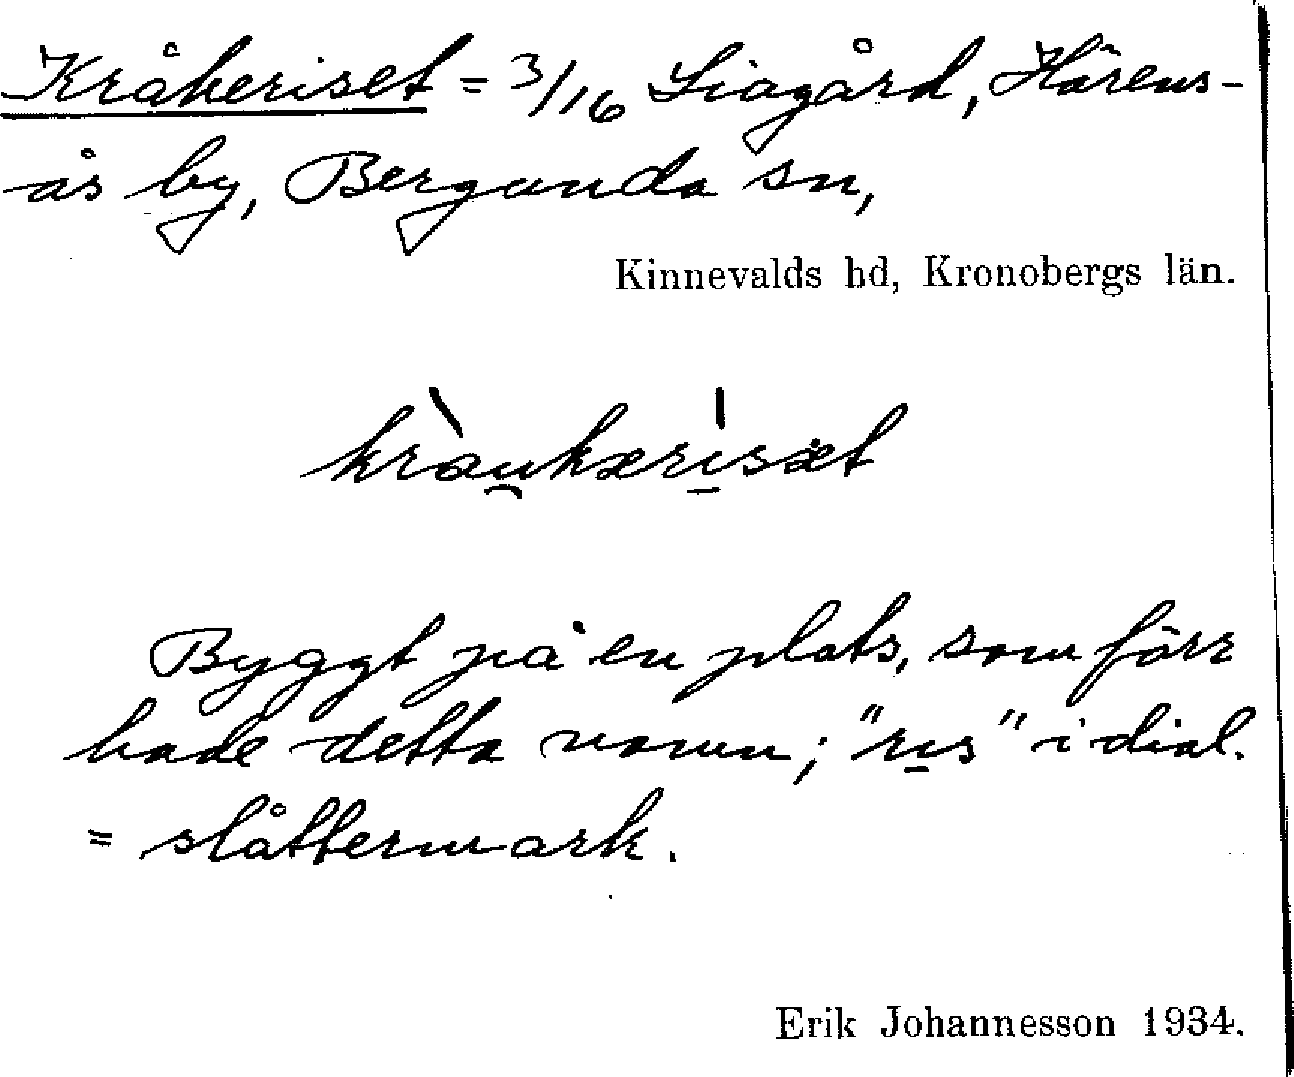 Kråkeriset = 3/16 Liagård, Härens-
ås by, Bergunda sn,
Kinnevalds hd, Kronobergs län.
kràu̯kæri̠sæt
Byggt på en plats, som förr
hade detta namn; "ri̠s" i dial.
= slåttermark.
Erik Johannesson 1934.